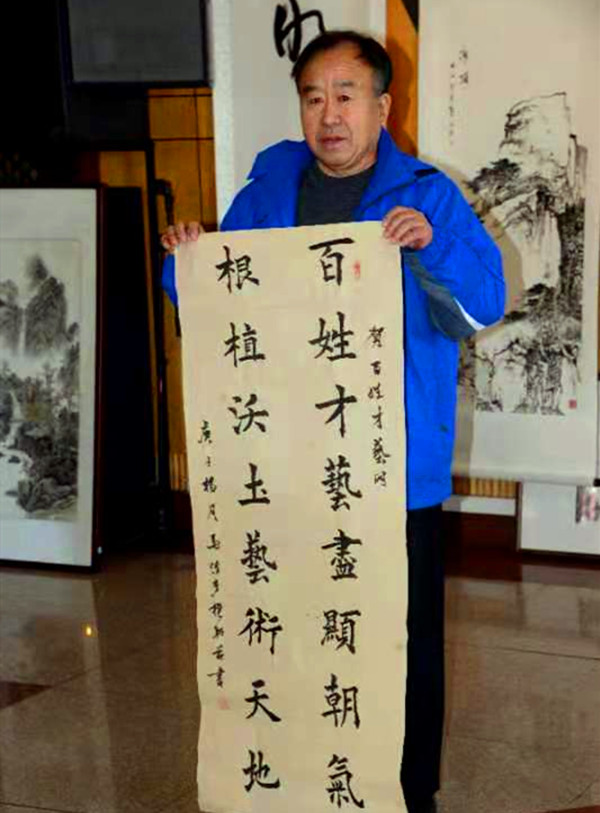 賀百姓才藝网
百姓才藝盡顯朝氣
根植沃土藝術天地
庚子榴月
書